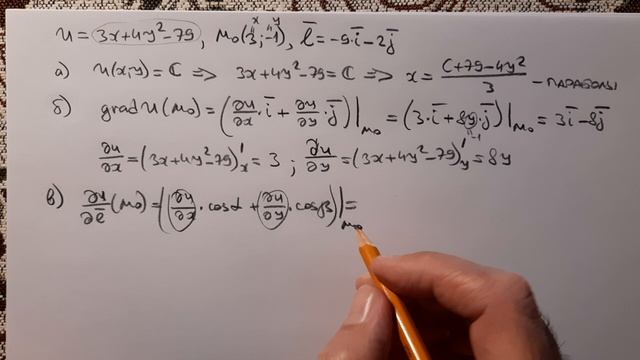 u = 3x+4y²-79, M₀(3;-1), l̅ = -9·i̅-2j̅
x y
а) u(x;y) = C => 3x+4y²-79 = C => x = (C+79-4y²)/3 - параболы
б) grad u(M₀) = (∂u/∂x · i̅ + ∂u/∂y · j̅)|M₀ = (3·i̅ + 8y·j̅)|M₀ = 3i̅-8j̅
-1
∂u/∂x = (3x+4y²-79)'x = 3 ; ∂u/∂y = (3x+4y²-79)'y = 8y
в) ∂u/∂l̅ (M₀) = (∂u/∂x · cosα + ∂u/∂y · cosβ)|M₀ =